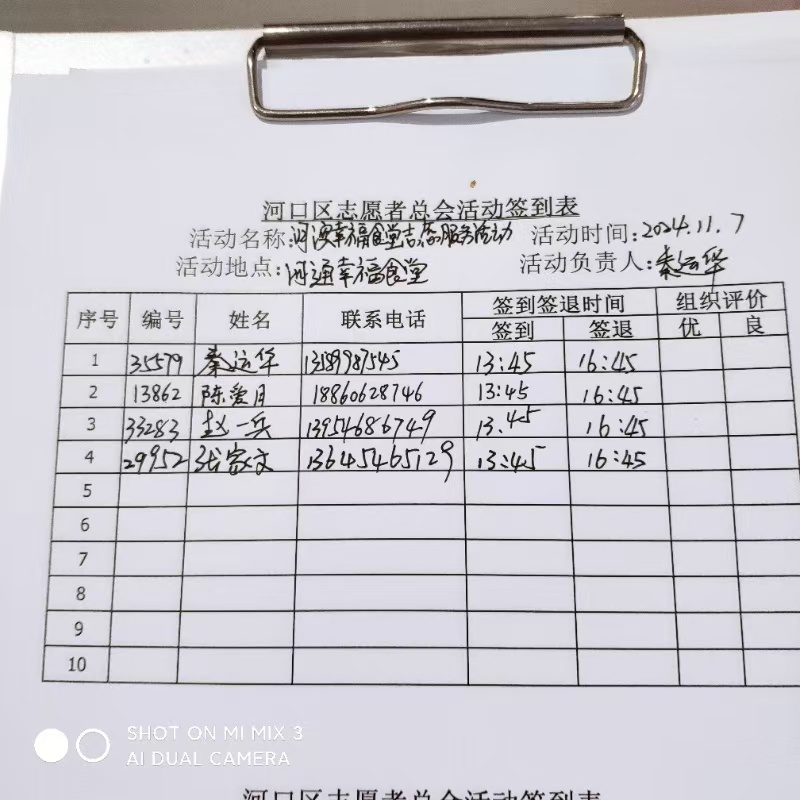 河口区志愿者总会活动签到表
活动名称: 河滨幸福食堂志愿服务活动 活动时间: 2024.11.7
活动地点: 河通幸福食堂 活动负责人: 秦运华
序号 编号 姓名 联系电话 签到签退时间 组织评价
签到 签退 优 良
1 35579 秦运华 13589987545 13:45 16:45
2 13862 陈爱月 18860628746 13:45 16:45
3 33283 赵一兵 13954686749 13.45 16:45
4 29952 张家文 13645465129 13:45 16:45
5
6
7
8
9
10
SHOT ON MI MIX 3
AI DUAL CAMERA
河口区志愿者总会活动签到表